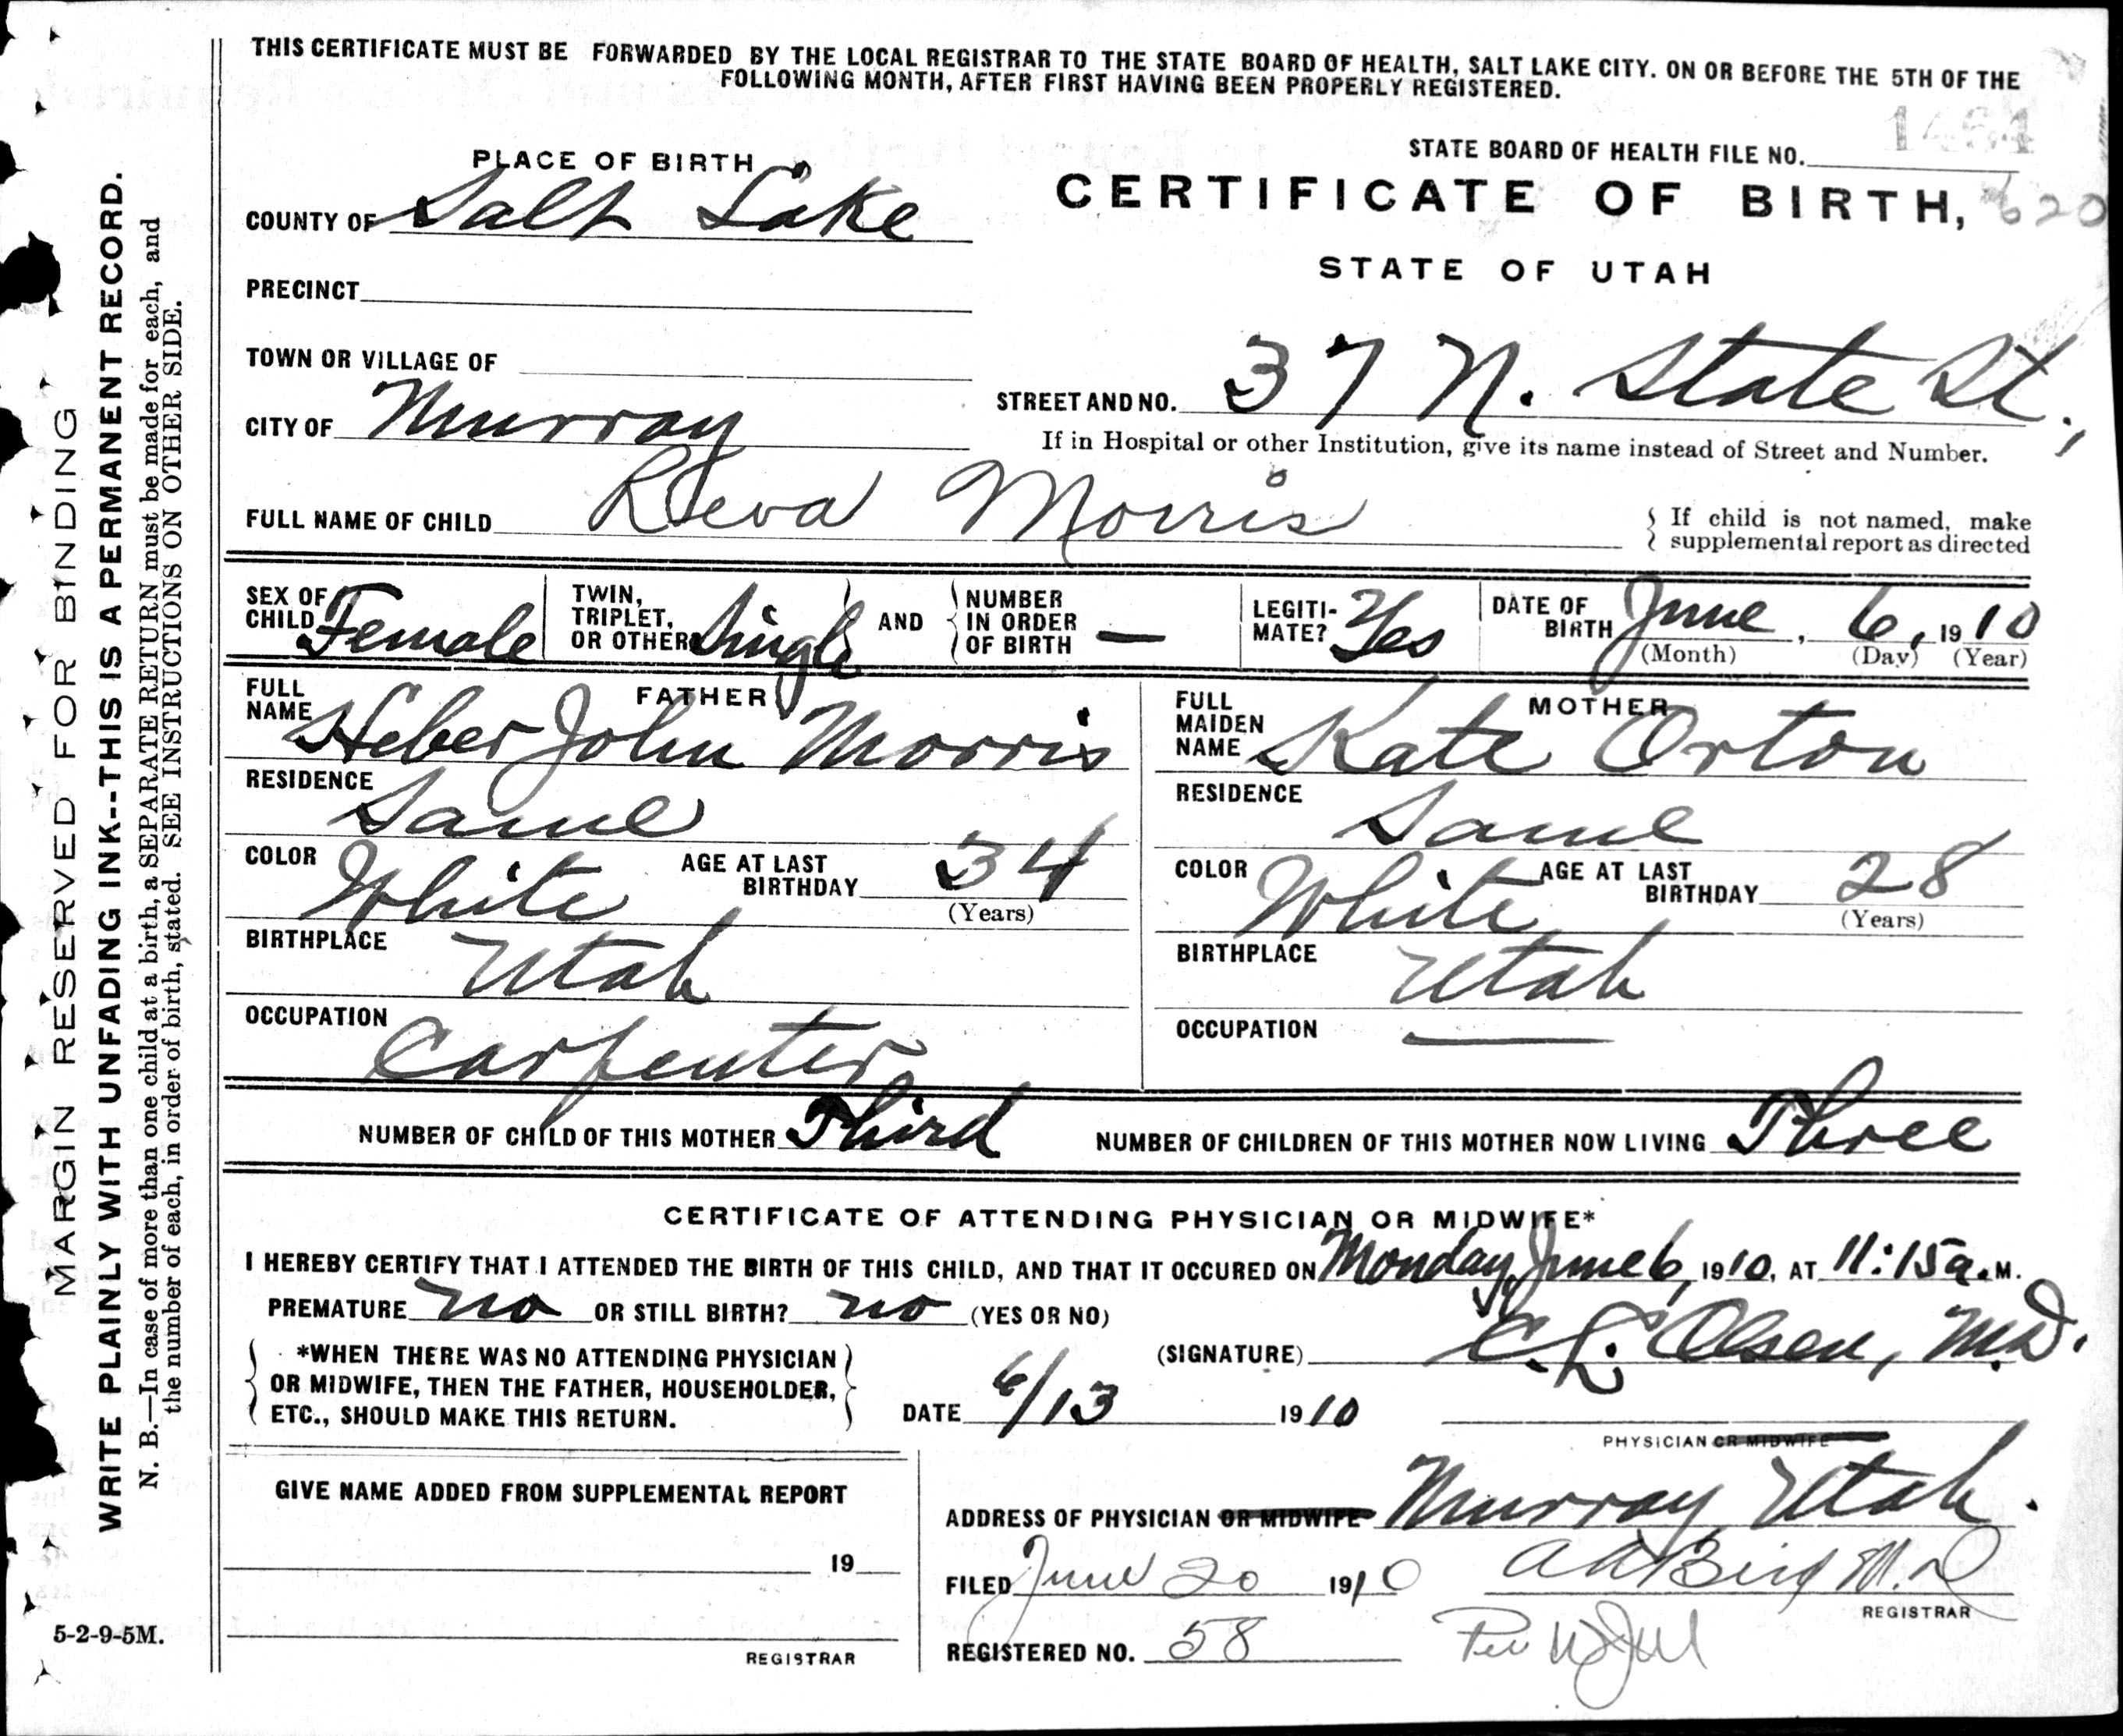 THIS CERTIFICATE MUST BE FORWARDED BY THE LOCAL REGISTRAR TO THE STATE BOARD OF HEALTH, SALT LAKE CITY. ON OR BEFORE THE 5TH OF THE
FOLLOWING MONTH, AFTER FIRST HAVING BEEN PROPERLY REGISTERED.
STATE BOARD OF HEALTH FILE NO.
PLACE OF BIRTH
COUNTY OF Salt Lake
CERTIFICATE OF BIRTH, 620
STATE OF UTAH
PRECINCT
TOWN OR VILLAGE OF
STREET AND NO. 37 N. State St.,
CITY OF Murray
If in Hospital or other Institution, give its name instead of Street and Number.
FULL NAME OF CHILD Reva Morris
{ If child is not named, make
supplemental report as directed
SEX OF CHILD Female
TWIN, TRIPLET, OR OTHER Single } AND { NUMBER IN ORDER OF BIRTH —
LEGITI-MATE? Yes
DATE OF BIRTH June, 6, 1910
(Month) (Day) (Year)
FATHER
FULL NAME Heber John Morris
RESIDENCE Same
COLOR White AGE AT LAST BIRTHDAY 34
(Years)
BIRTHPLACE Utah
OCCUPATION Carpenter
MOTHER
FULL MAIDEN NAME Kate Orton
RESIDENCE Same
COLOR White AGE AT LAST BIRTHDAY 28
(Years)
BIRTHPLACE Utah
OCCUPATION —
NUMBER OF CHILD OF THIS MOTHER Third NUMBER OF CHILDREN OF THIS MOTHER NOW LIVING Three
CERTIFICATE OF ATTENDING PHYSICIAN OR MIDWIFE*
I HEREBY CERTIFY THAT I ATTENDED THE BIRTH OF THIS CHILD, AND THAT IT OCCURED ON Monday, June 6, 1910, AT 11:15 a.M.
PREMATURE no OR STILL BIRTH? no (YES OR NO)
{ *WHEN THERE WAS NO ATTENDING PHYSICIAN
OR MIDWIFE, THEN THE FATHER, HOUSEHOLDER,
ETC., SHOULD MAKE THIS RETURN. }
(SIGNATURE) C. L. Olsen, M.D.
DATE 6/13 1910
PHYSICIAN OR MIDWIFE
GIVE NAME ADDED FROM SUPPLEMENTAL REPORT
19
REGISTRAR
ADDRESS OF PHYSICIAN OR MIDWIFE Murray Utah.
FILED June 20 1910 M.D
REGISTRAR
REGISTERED NO. 58 Per
MARGIN RESERVED FOR BINDING
WRITE PLAINLY WITH UNFADING INK--THIS IS A PERMANENT RECORD.
N. B.—In case of more than one child at a birth, a SEPARATE RETURN must be made for each, and
the number of each, in order of birth, stated. SEE INSTRUCTIONS ON OTHER SIDE.
5-2-9-5M.